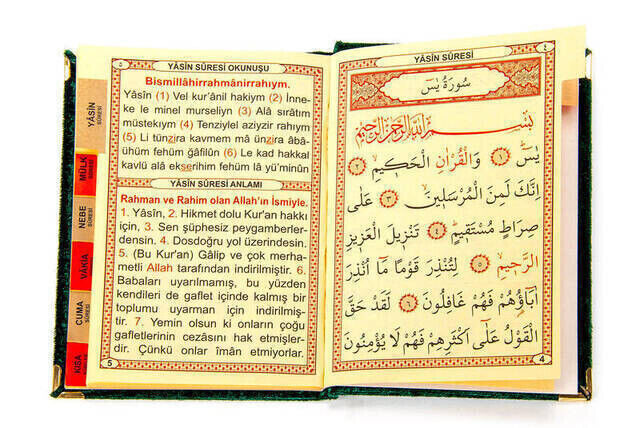 YÂSİN
SÛRESİ
MÜLK
SÛRESİ
NEBE
SÛRESİ
VÂKIA
SÛRESİ
CUMA
SÛRESİ
KISA
٥
YÂSİN SÛRESİ OKUNUŞU
Bismillâhirrahmânirrahıym.
Yâsîn (1) Vel kur'ânil hakiym (2) İnne-
ke le minel murseliyn (3) Alâ sırâtım
müstekıym (4) Tenziylel aziyzir rahıym
(5) Li tünzira kavmem mâ ünzira âbâ-
ühüm fehüm ğâfilûn (6) Le kad hakkal
kavlü alâ ekserihim fehüm lâ yü'minûn
YÂSİN SÛRESİ ANLAMI
Rahman ve Rahim olan Allah'ın İsmiyle.
1. Yâsîn, 2. Hikmet dolu Kur'an hakkı
için, 3. Sen şüphesiz peygamberler-
densin. 4. Dosdoğru yol üzerindesin.
5. (Bu Kur'an) Gâlip ve çok merha-
metli Allah tarafından indirilmiştir. 6.
Babaları uyarılmamış, bu yüzden
kendileri de gaflet içinde kalmış bir
toplumu uyarman için indirilmiş-
tir. 7. Yemin olsun ki onların çoğu
gafletlerinin cezasını hak etmişler-
dir. Çünkü onlar îman etmiyorlar.
5
YÂSİN SÛRESİ
٤
سُورَةُ يٰسٓ
بِسْمِ اللّٰهِ الرَّحْمٰنِ الرَّحِيمِ
يٰسٓ ﴿١﴾ وَالْقُرْاٰنِ الْحَكِيمِ ﴿٢﴾
اِنَّكَ لَمِنَ الْمُرْسَلِينَ ﴿٣﴾ عَلٰى
صِرَاطٍ مُسْتَقِيمٍ ﴿٤﴾ تَنْزِيلَ الْعَزِيزِ
الرَّحِيمِ ﴿٥﴾ لِتُنْذِرَ قَوْمًا مَٓا اُنْذِرَ
اٰبَٓاؤُهُمْ فَهُمْ غَافِلُونَ ﴿٦﴾ لَقَدْ حَقَّ
الْقَوْلُ عَلٰٓى اَكْثَرِهِمْ فَهُمْ لَا يُؤْمِنُونَ
4